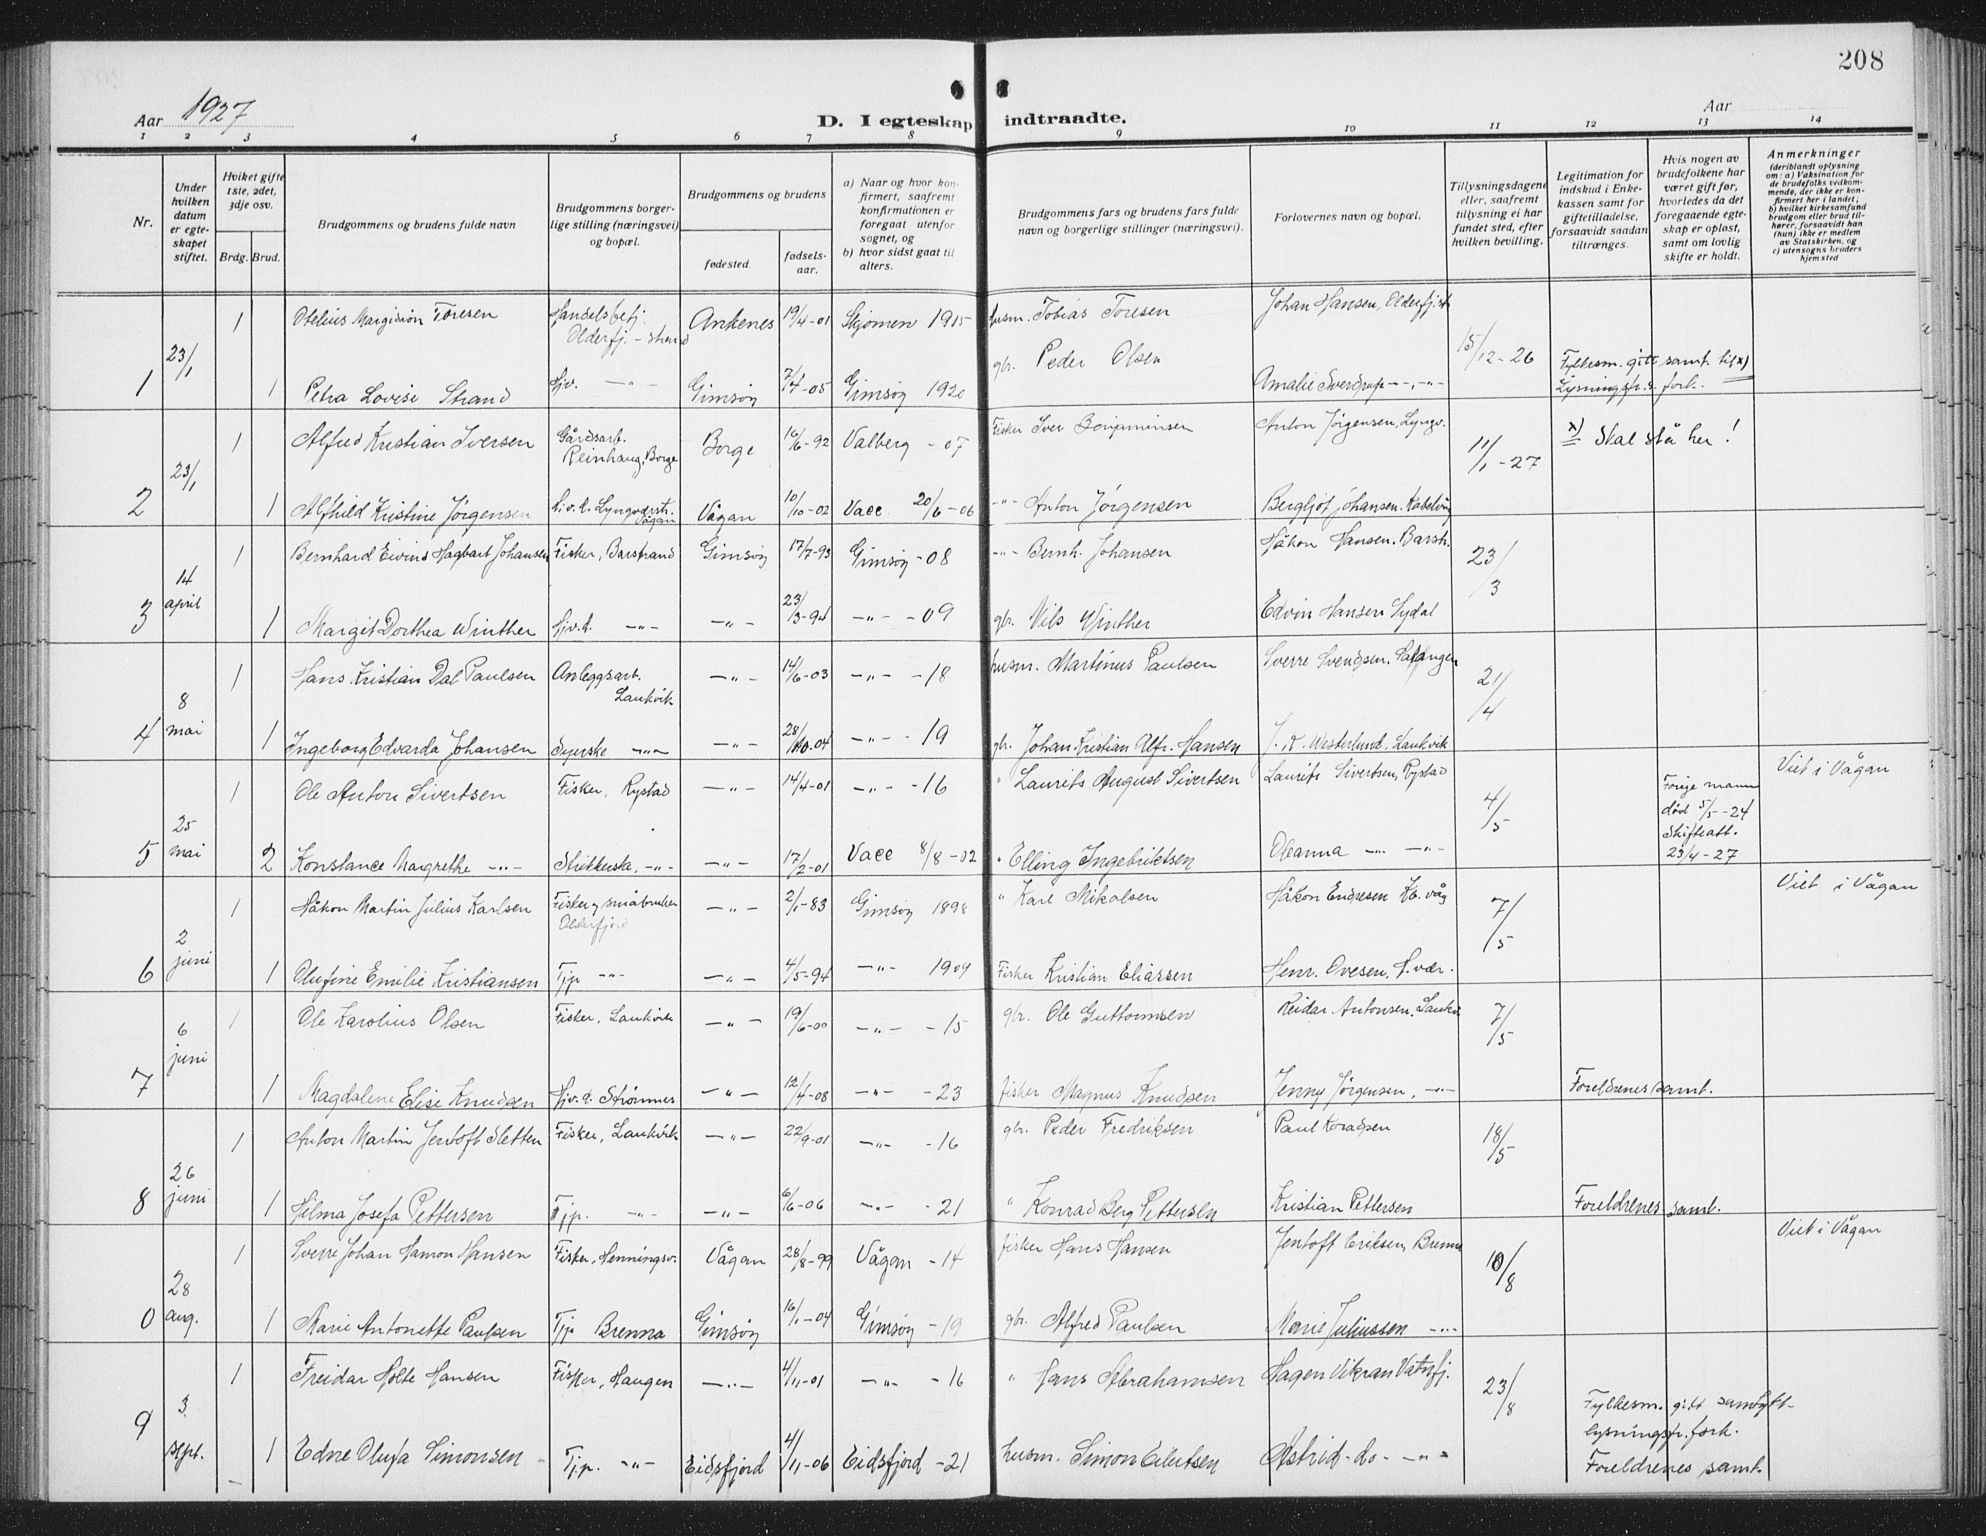 208
Aar 1927
D. I egteskap indtraadte.
Aar
1 2 3 4 5 6 7 8 9 10 11 12 13 14
Nr.
Under hvilken datum er egteskapet stiftet.
Hviket gifte 1ste, 2det, 3dje osv.
Brdg. Brud.
Brudgommens og brudens fulde navn
Brudgommens borgerlige stilling (næringsvei) og bopæl.
Brudgommens og brudens
fødested.
fødselsaar.
a) Naar og hvor konfirmert, saafremt konfirmutionen er foregaat utenfor sognet, og
b) hvor sidst gaat til alters.
Brudgommens fars og brudens fars fulde navn og borgerlige stillinger (næringsvei).
Forlovernes navn og bopæl.
Tillysningsdagene eller, saafremt tillysning ei har fundet sted, efter hvilken bevilling.
Legitimation for indskud i Enkekassen samt for giftetilladelse, forsaavidt saadan tiltrænges.
Hvis nogen av brudefolkene har været gift før, hvorledes da det foregaaende egteskap er opløst, samt om lovlig skifte er holdt.
Anmerkninger
(deriblandt oplysning om: a) Vaksination for de brudefolks vedkommende, der ikke er konfirmert her i landet; b) hvilket kirkesamfund brudgom eller brud tilhører, forsaavidt han (hun) ikke er medlem av Statskirken, og c) utensogns bruders hjemsted
1 Otelius Margision Toresen Handelsbetj. Olderfj.-strand Ankenes 19/4-01 Skjomen 1915 husm. Tobias Toresen Johan Hansen, Olderfj.str
1 23/1 1 Petra Lovise Strand Hjv. -"- Gimsøy 7/4-05 Gimsøy 1920 gbr. Peder Olsen Amalie Sverdrup -"-,-"- 15/12-26 Fylkesm. gitt samt. til x) Lysningsfr.s fork.
1 Alfred Kristian Iversen Gårdsarb. Reinhaug, Borge Borge 16/6-92 Valberg -07 Fisker Iver Benjaminsen Anton Jørgensen, Lyngv. x) Skal stå her!
2 23/1 1 Alfhild Kristine Jørgensen Hjv.d. Lyngværstr. Vågan Vågan 10/10-02 Vacc. 20/6-06 -"- Anton Jørgensen Bergljot Johansen. Kabelvåg 11/1-27
1 Bernhard Eivind Hagbart Johansen Fisker, Barstrand Gimsøy 17/7-93 Gimsøy -08 -"- Bernh. Johansen Håkon Hansen. Barstr.
3 14 april 1 Margit Dorthea Winther Hjv.d. -"- -"- 23/3-94 -"- -09 gbr. Nils Winther Edvin Hansen Sydal 23/3
1 Hans Kristian Dal Paulsen Anleggsarb. Laukvik -"- 14/6-03 -"- -18 husm. Martinus Paulsen Sverre Svendsen.
4 8 mai 1 Ingeborg Edvarda Johansen Syerske -"- -"- 28/10-04 -"- -19 gbr. Johan Kristian Alfr. Hansen J. K. Westerlund, Laukvik 21/4
1 Ole Anton Sivertsen Fisker, Rystad -"- 14/4-01 -"- -16 " Laurits August Sivertsen Laurits Sivertsen, Rystad Viet i Vågan
5 25 mai 2 Konstance Margrethe -"- Strikkerske, -"- -"- 17/2-01 Vacc 8/8-02 " Elling Ingebriktsen Oleanna -"- -"- 4/5 Forrige mann død 5/5-24 Skifteatt. 23/4-27
1 Håkon Martin Julius Karlsen Fisker og småbruker Olderfjord -"- 2/1-83 Gimsøy 1898 " Karl Mikalsen Håkon Endresen Kb.våg Viet i Vågan
6 2 juni 1 Olufine Emilie Kristiansen Tjp -"- -"- 4/5-94 -"- 1909 Fisker Kristian Eliassen Henr. Ovesen, S.vær. 7/5
1 Ole Karolius Olsen Fisker, Laukvik -"- 19/6-00 -"- -15 gbr. Ole Guttormsen Reidar Antonsen. Laukv.
7 6 juni 1 Magdalene Elise Knudsen Hjv.d. Strømnes -"- 12/4-08 -"- -23 fisker Magnus Knudsen Jenny Jørgensen, -"- 7/5 Foreldrenes samt.
1 Anton Martin Jentoft Sletten Fisker, Laukvik -"- 22/9-01 -"- -16 gbr. Peder Fredriksen Paul Konradsen
8 26 juni 1 Hilma Josefa Pettersen Tjp. -"- -"- 6/6-06 -"- -21 " Konrad Berg Pettersen Kristian Pettersen 18/5 Foreldrenes samt.
1 Sverre Johan Hamon Hansen Fisker, Henningsv. Vågan 28/8-99 Vågan -14 fisker Hans Hansen Jentoft Eriksen, Brenna Viet i Vågan
0 28 aug. 1 Marie Antonette Paulsen Tjp Brenna Gimsøy 16/1-04 Gimsøy -19 gbr. Alfred Paulsen Marie Juliussen -"- 10/8
1 Freidar Holte Hansen Fisker, Haugen -"- 4/11-01 -"- -16 " Hans Abrahamsen Hagen Vikran Vatnfj.
9 3. sept. 1 Edne Olufa Simonsen Tjp. -"- Eidsfjord 4/11-06 Eidsfjord -21 husm. Simon Eilertsen Astrid -do- -"- 23/8 Fylkesm. gitt samtykt. lysningsfr. fork. Foreldrenes samt.